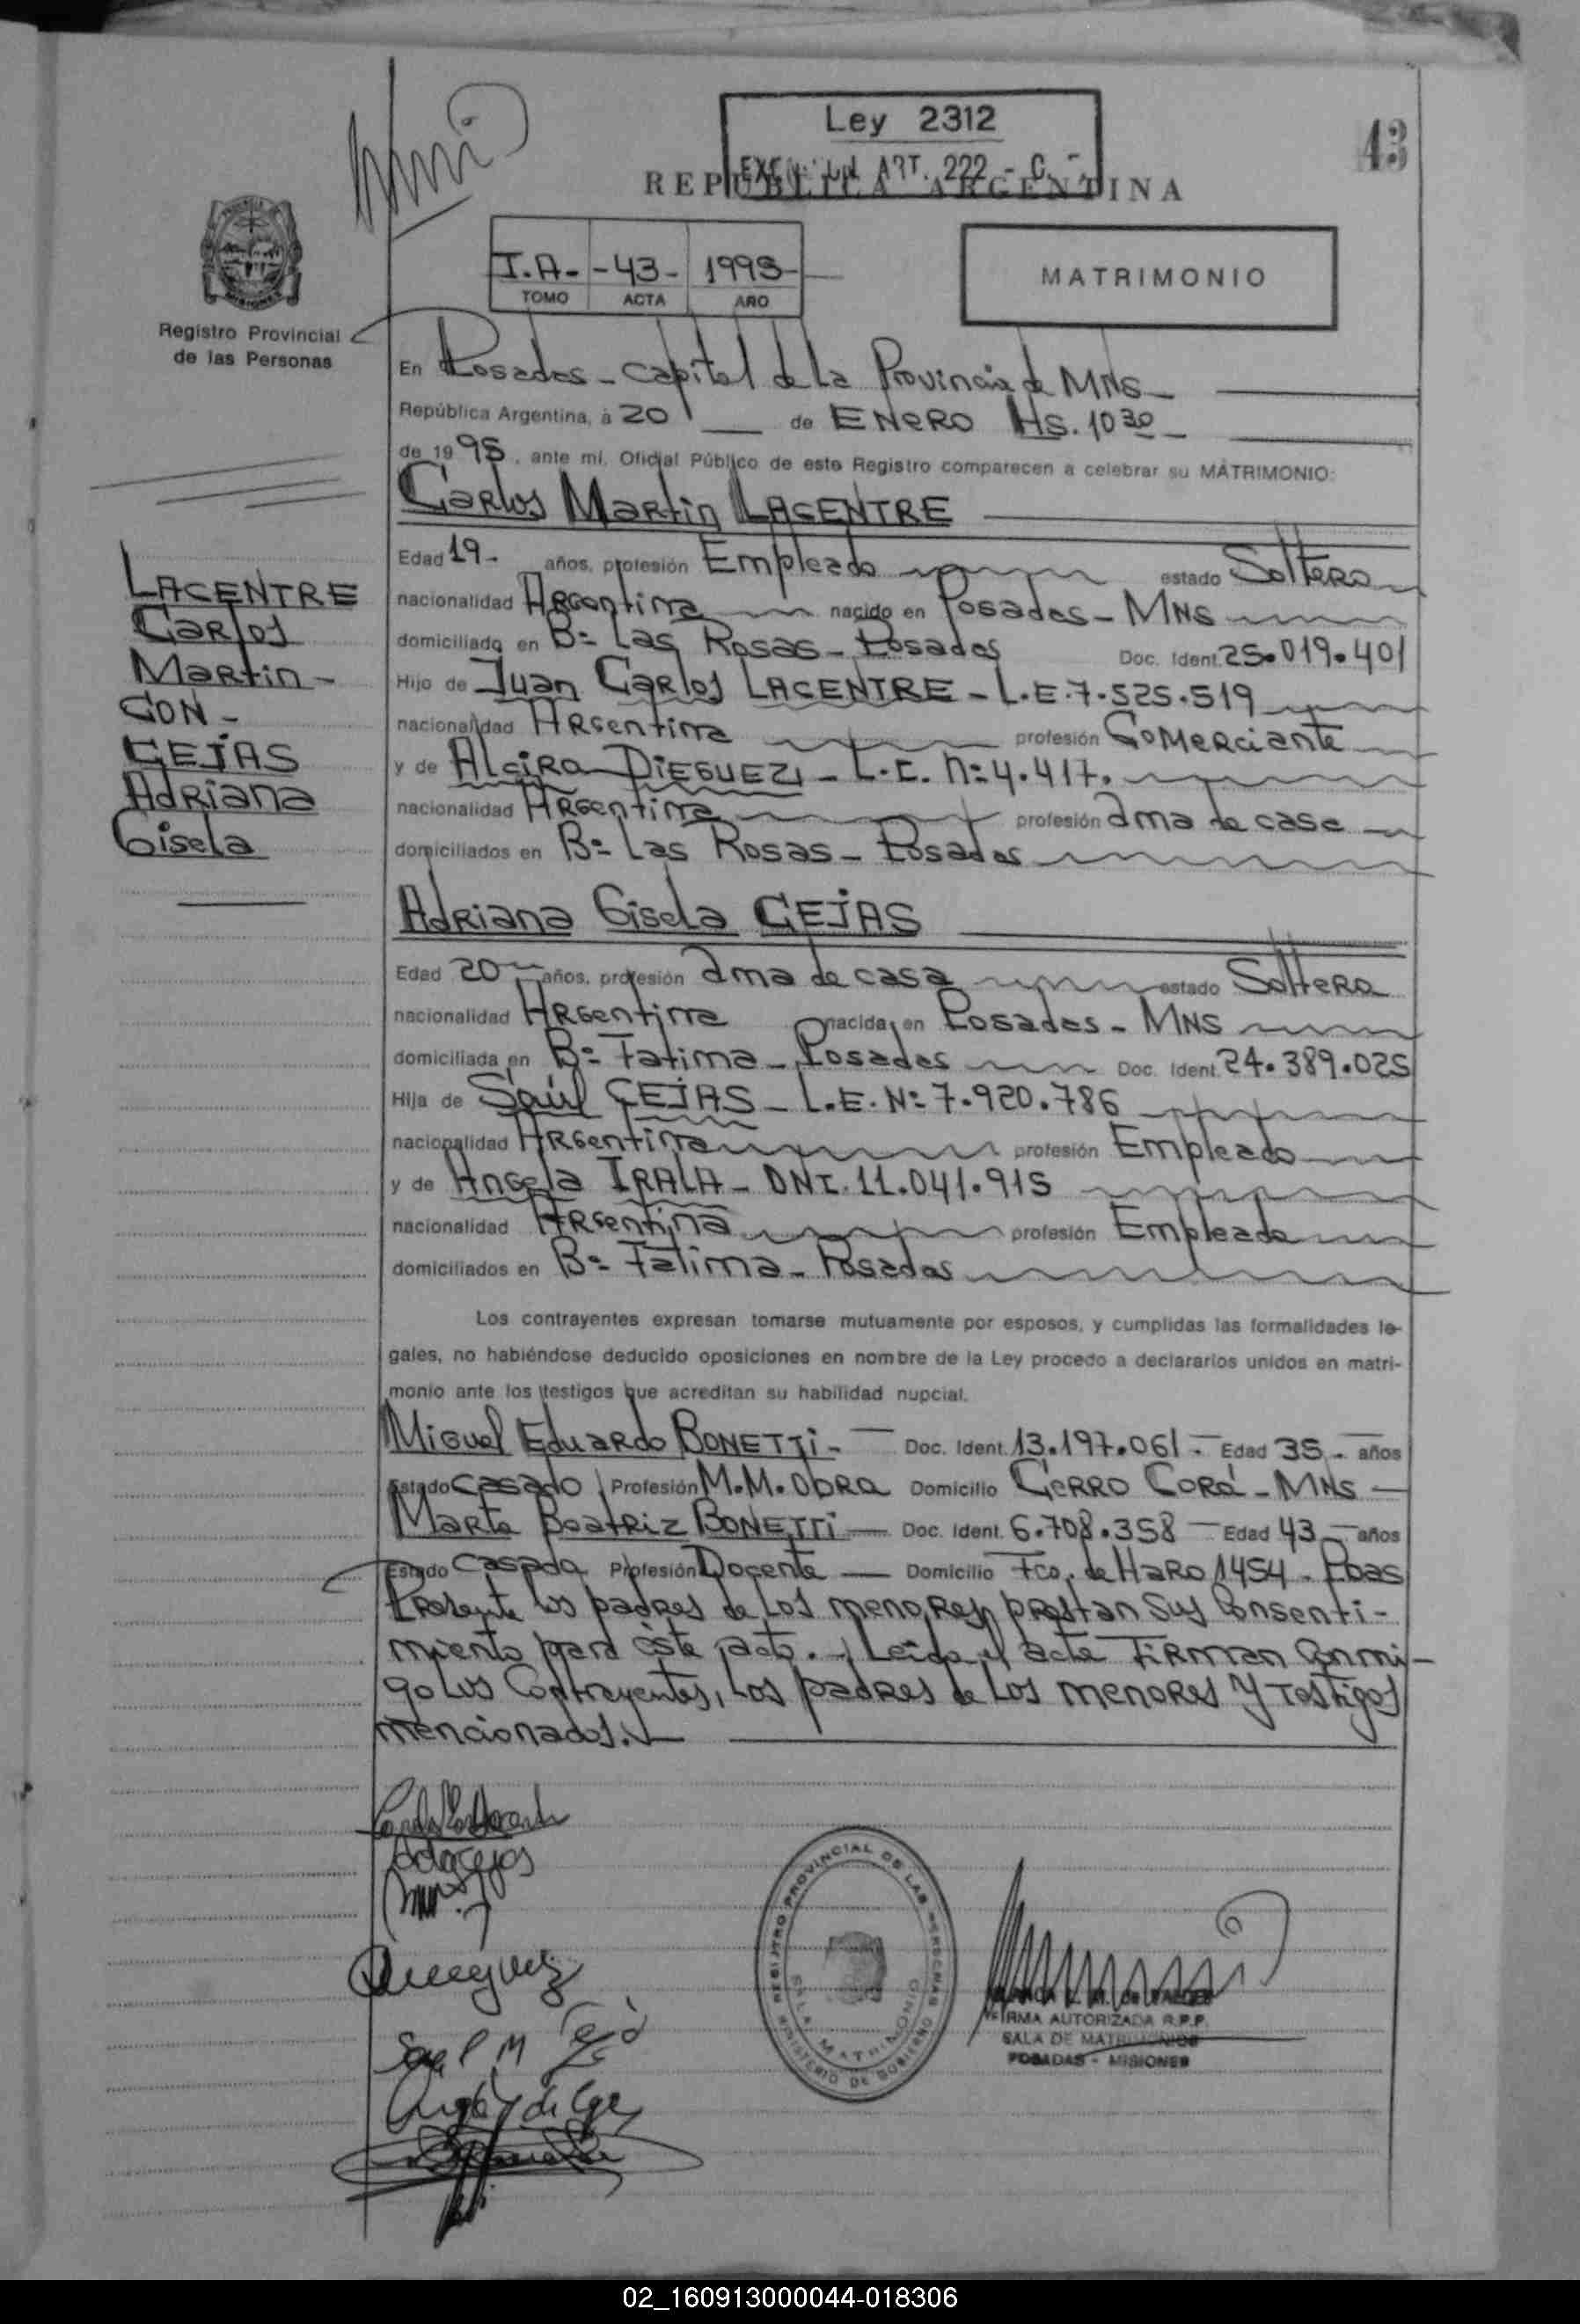 Ley 2312
ART. 222 - C.
43
REPUBLICA ARGENTINA
I.A. - 43 - 1995
TOMO ACTA AÑO
MATRIMONIO
Registro Provincial
de las Personas
En Posadas - Capital de la Provincia de MNS -
República Argentina, à 20 de ENERO Hs. 10 30 -
de 1995, ante mí, Oficial Público de este Registro comparecen a celebrar su MATRIMONIO:
Carlos Martin LACENTRE
Edad 19 - años, profesión Empleado estado Soltero
nacionalidad Argentina nacido en Posadas - MNS
domiciliado en B= Las Rosas - Posadas Doc. Ident. 25.019.401
Hijo de Juan Carlos LACENTRE - L.E. 7.525.519
nacionalidad Argentina profesión Comerciante
y de Alcira DIEGUEZ - L.C. N: 4.417.
nacionalidad Argentina profesión ama de casa
domiciliados en B= Las Rosas - Posadas
LACENTRE
Carlos
Martin -
CON -
CEJAS
Adriana
Gisela
Adriana Gisela CEJAS
Edad 20 años, profesión ama de casa estado Soltera
nacionalidad Argentina nacida en Posadas - MNS
domiciliada en B= Fatima - Posadas Doc. Ident. 24.389.025
Hija de Saúl CEJAS - L.E. N: 7.920.786
nacionalidad Argentina profesión Empleado
y de Angela IRALA - DNI. 11.041.915
nacionalidad Argentina profesión Empleada
domiciliados en B= Fatima - Posadas
Los contrayentes expresan tomarse mutuamente por esposos, y cumplidas las formalidades le-
gales, no habiéndose deducido oposiciones en nombre de la Ley procedo a declararlos unidos en matri-
monio ante los testigos que acreditan su habilidad nupcial.
Miguel Eduardo BONETTI - Doc. Ident. 13.197.061 - Edad 35 - años
Estado casado Profesión M.M. Obra Domicilio Cerro Corá - MNS
Marta Beatriz BONETTI Doc. Ident. 6.708.358 Edad 43 - años
Estado casada Profesión Docente Domicilio Fco. de Haro 1454 - Pdas
Presente los padres de los menores, prestan sus Consenti-
miento para éste acto. Leída el acta firman Conmi-
go los Contrayentes, los padres de los menores y testigos
mencionados.
REGISTRO PROVINCIAL DE LAS PERSONAS
SALA MATRIMONIO
MINISTERIO DE GOBIERNO
FIRMA AUTORIZADA R.P.P.
SALA DE MATRIMONIOS
POSADAS - MISIONES
02_160913000044-018306